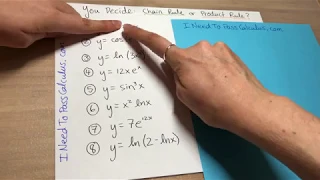 You Decide: Chain Rule or Product Rule?
② y = cos
③ y = ln (5x
④ y = 12xeˣ
⑤ y = sin³x
⑥ y = x² lnx
⑦ y = 7e¹²ˣ
⑧ y = ln (2 - lnx)
I Need To Pass Calculus.com
I Need To Pass Calculus.com